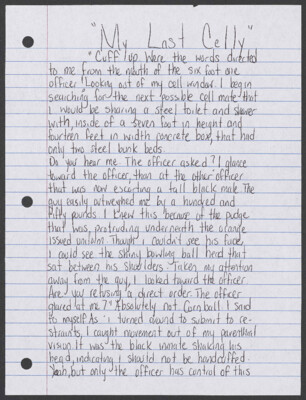 "My Last Celly"
"Cuff up. Were the words directed
to me from the mouth of the six foot one
officer. Looking out of my cell window. I begin
searching for the next possible cell mate that
I would be sharing a steel toilet and shower
with, inside of a seven foot in height and
fourteen feet in width concrete box, that had
only two steel bunk beds.
Do you hear me. The officer asked? I glance
toward the officer, than at the other officer
that was now escorting a tall black male. The
guy easily outweighed me by a hundred and
fifty pounds I knew this because of the pudge
that was, protruding underneath the orange
issued uniform. Though I couldn't see his face,
I could see the shiny bowling ball head that
sat between his shoulders. Taken my attention
away from the guy, I looked toward the officer.
Are you refusing a direct order. The officer
glared at me? Absolutely not Corn ball. I said
to myself. As I turned around to submit to re-
straints, I caught movement out of my perenthial
vision. It was the black inmate shaking his
head, indicating I should not be handcuffed.
Yeah, but only the officer has control of this